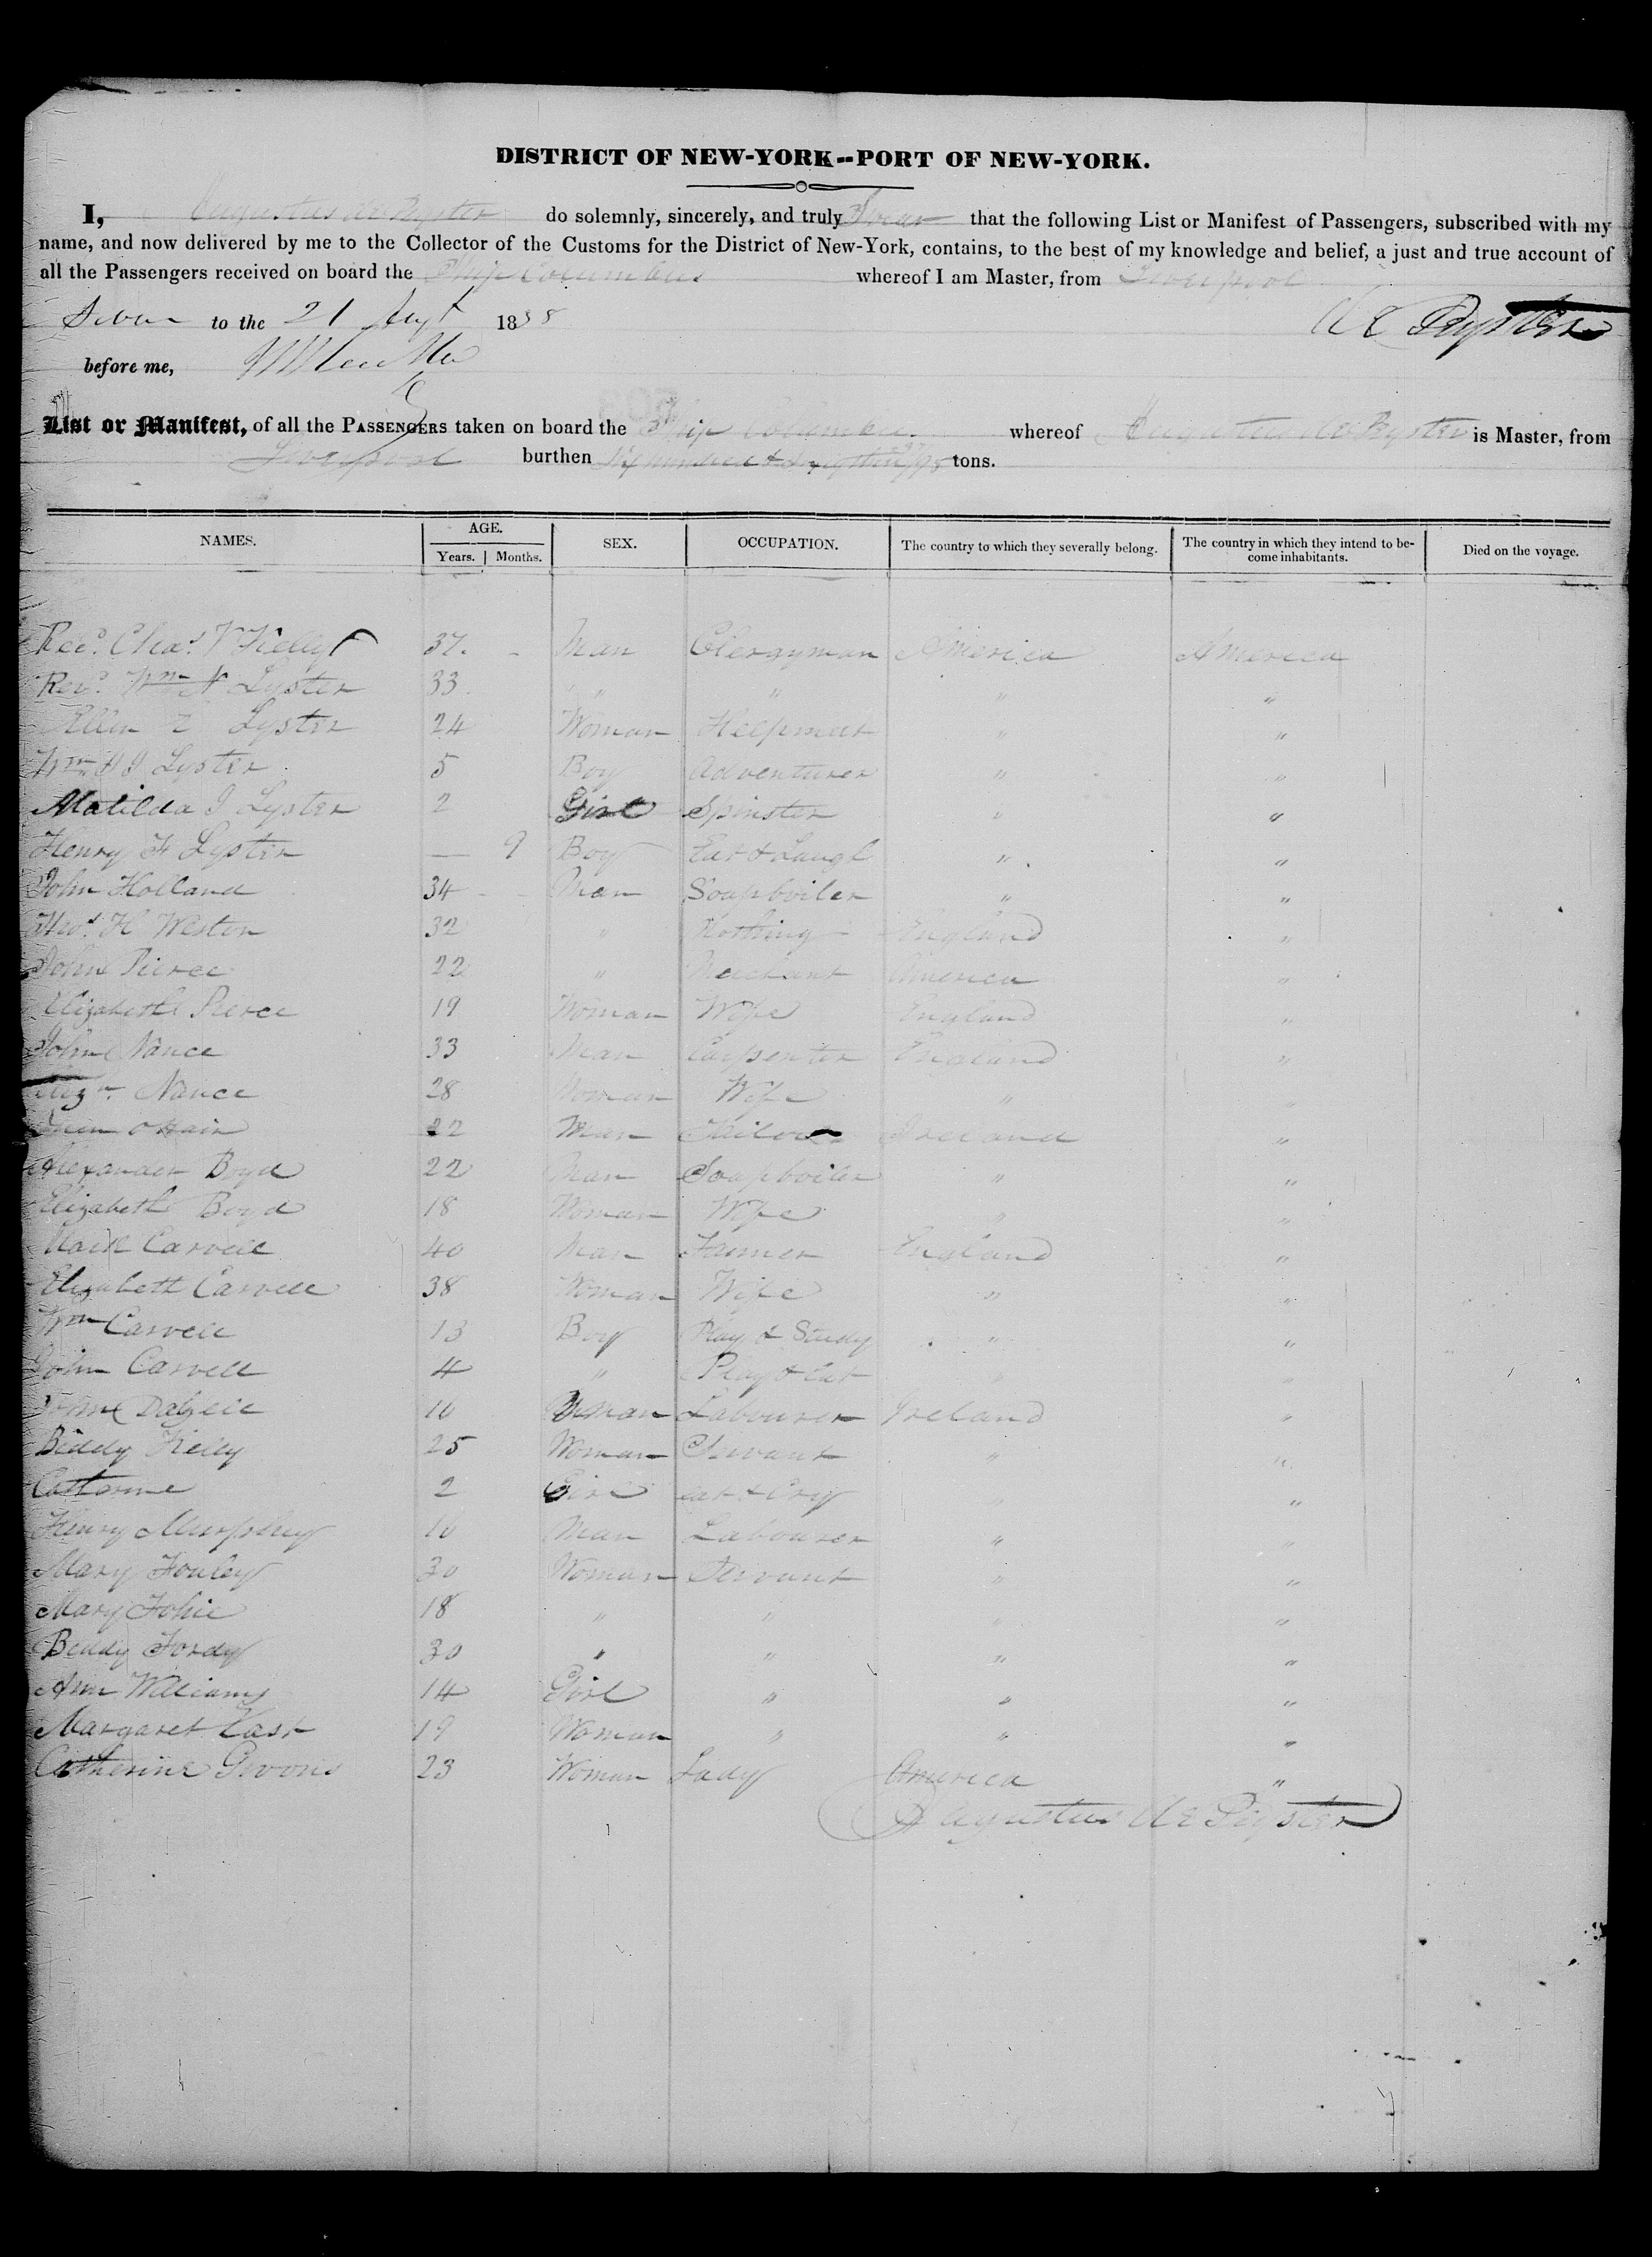 DISTRICT OF NEW-YORK--PORT OF NEW-YORK.
I, Augustus De Peyster do solemnly, sincerely, and truly Swear that the following List or Manifest of Passengers, subscribed with my
name, and now delivered by me to the Collector of the Customs for the District of New-York, contains, to the best of my knowledge and belief, a just and true account of
all the Passengers received on board the Ship Columbus whereof I am Master, from Liverpool
Sworn to the 21 Augt 1838 De Peyster
before me,
List or Manifest, of all the PASSENGERS taken on board the Ship Columbus whereof Augustus De Peyster is Master, from
Liverpool burthen Six hundred & tons.
NAMES. AGE. SEX. OCCUPATION. The country to which they severally belong. The country in which they intend to be- Died on the voyage.
Years. Months. come inhabitants.
Revd. Chas. V Kelly 37. - Man Clergyman America America
Revd. Wm N Lyster 33 " " " "
Ellen E Lyster 24 Woman Helpmeet " "
Wm Lyster 5 Boy Adventurer " "
Matilda J Lyster 2 Girl Spinster " "
Henry F Lyster — 9 Boy Eat & Laugh " "
John Holland 34 - Man Soapboiler " "
Thos. H Weston 32 " Nothing England "
John Pierce 22 " Merchant America "
Elizabeth Pierce 19 Woman Wife England "
John Nance 33 Man Carpenter England "
Nance 28 Woman Wife " "
22 Man Tailor Ireland "
Alexander Boyd 22 Man Soapboiler " "
Elizabeth Boyd 18 Woman Wife " "
Mark Carvell 40 Man Farmer England "
Elizabeth Carvell 38 Woman Wife " "
Wm Carvell 13 Boy Play & Study " "
John Carvell 4 " Play & Eat " "
Dalzell Man Labourer Ireland "
Biddy Kelly 25 Woman Servant " "
Catharine 2 Girl eat & Cry " "
Henry Murphy Man Labourer " "
Mary Fouley 30 Woman Servant " "
Mary 18 " " " "
Biddy Fordy 30 " " " "
Ann Williams 14 Girl " " "
Margaret 19 Woman " " "
Catherine 23 Woman Lady America "
Augustus De Peyster